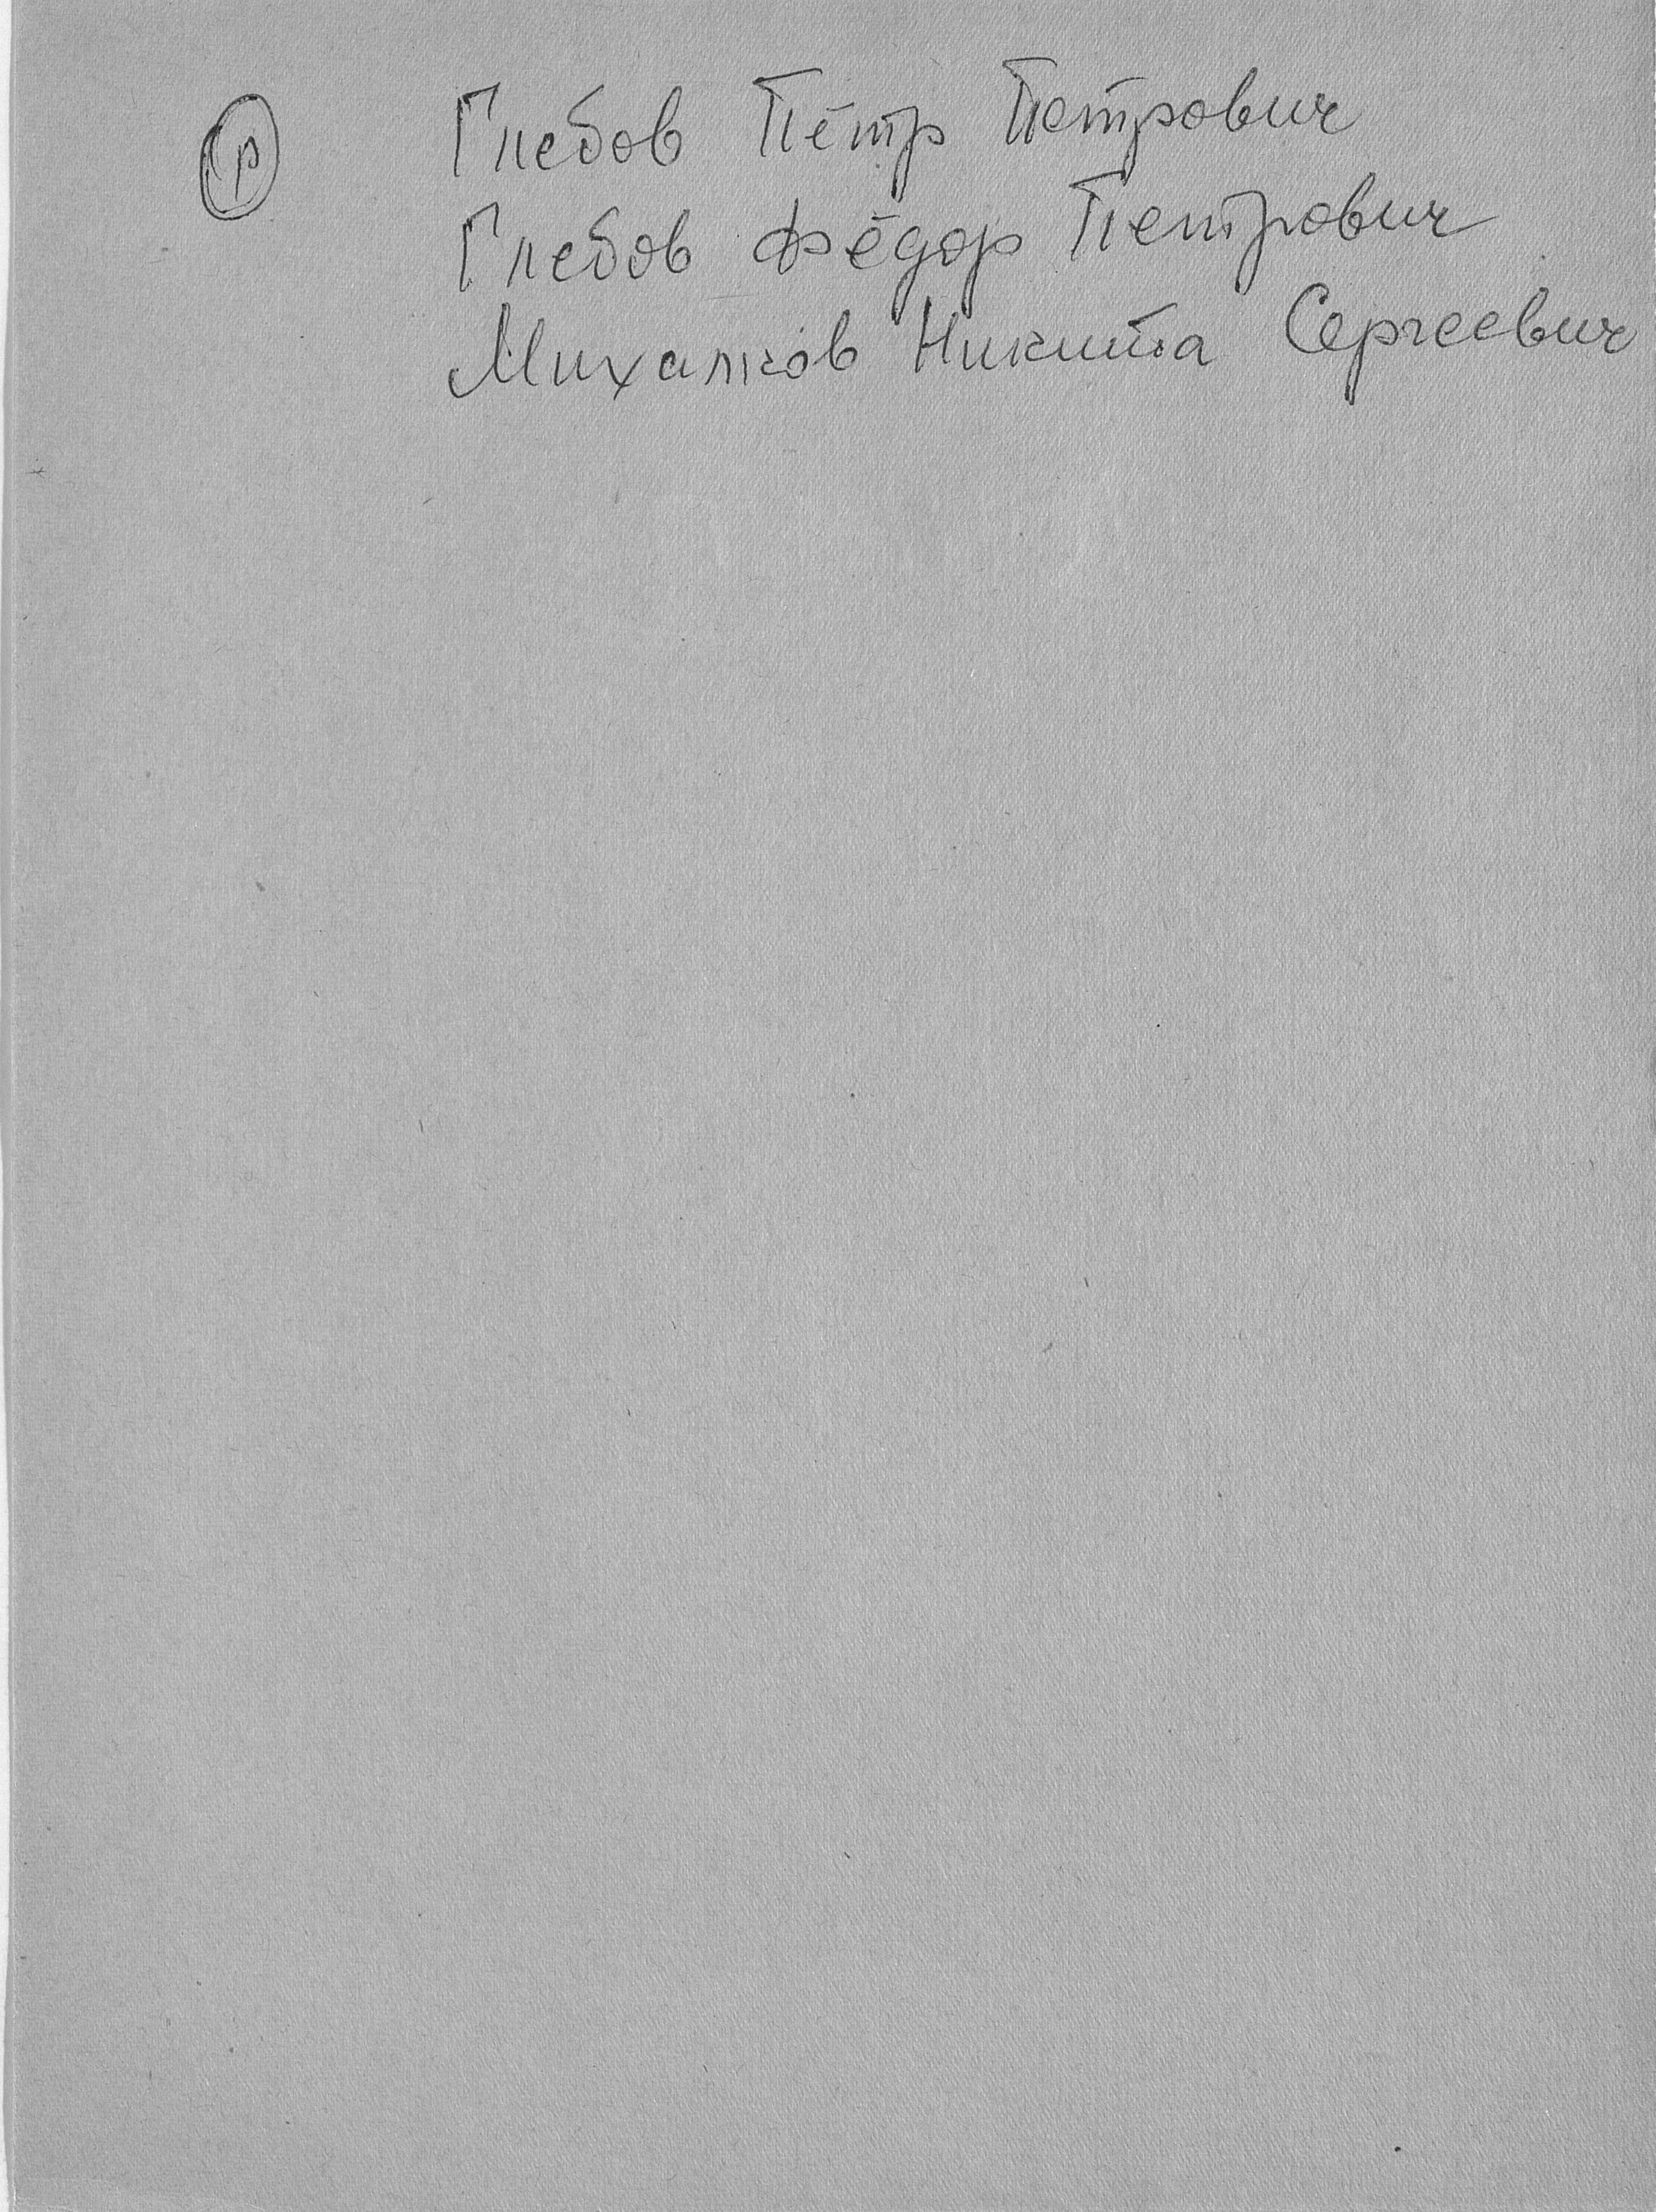 р Глебов Пётр Петрович
Глебов Фёдор Петрович
Михалков Никита Сергеевич